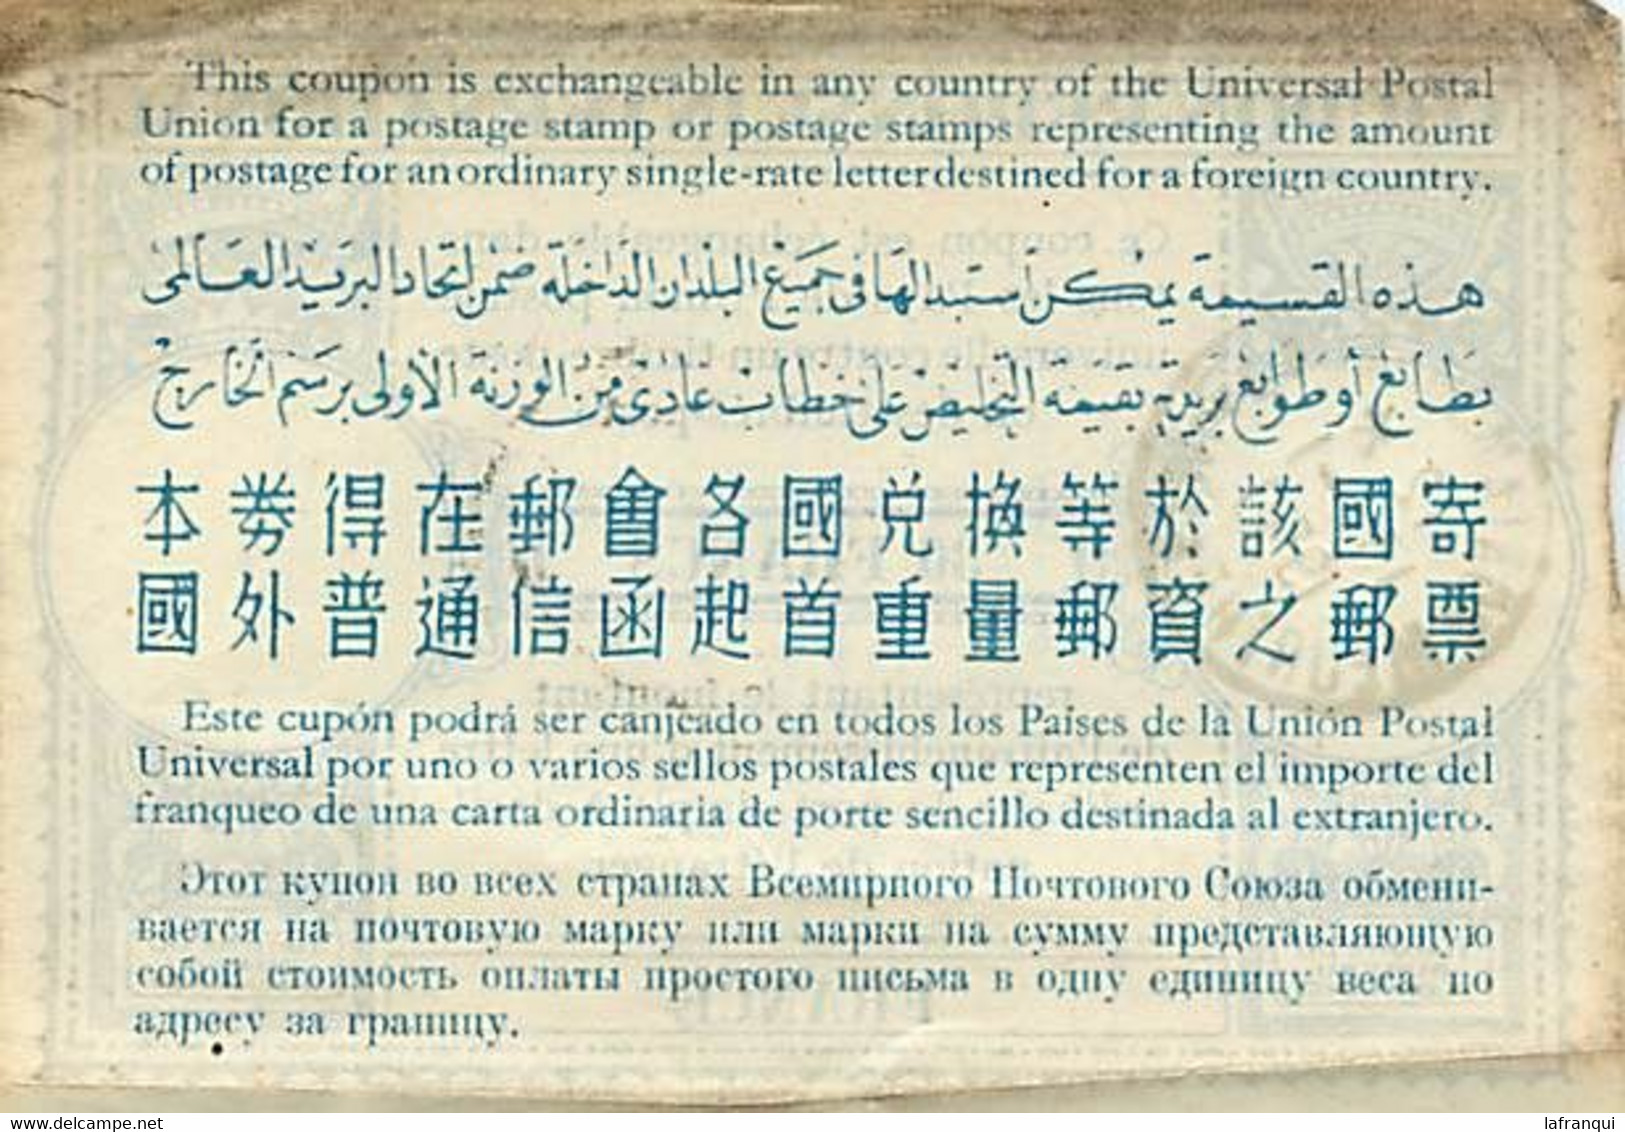 This coupon is exchangeable in any country of the Universal Postal
Union for a postage stamp or postage stamps representing the amount
of postage for an ordinary single-rate letter destined for a foreign country.
هذه القسيمة يمكن استبدالها في جميع البلدان الداخلة ضمن اتحاد البريد العالمى
بطابع أو طوابع بريدية بقيمة التخليص على خطاب عادى من الوزنة الأولى برسم الخارج
本券得在郵會各國兌換等於該國寄
國外普通信函起首重量郵資之郵票
Este cupón podrá ser canjeado en todos los Países de la Unión Postal
Universal por uno o varios sellos postales que representen el importe del
franqueo de una carta ordinaria de porte sencillo destinada al extranjero.
Этот купон во всех странах Всемирного Почтового Союза обмени-
вается на почтовую марку или марки на сумму представляющую
собой стоимость оплаты простого письма в одну единицу веса по
адресу за границу.
delcampe.net
lafranqui